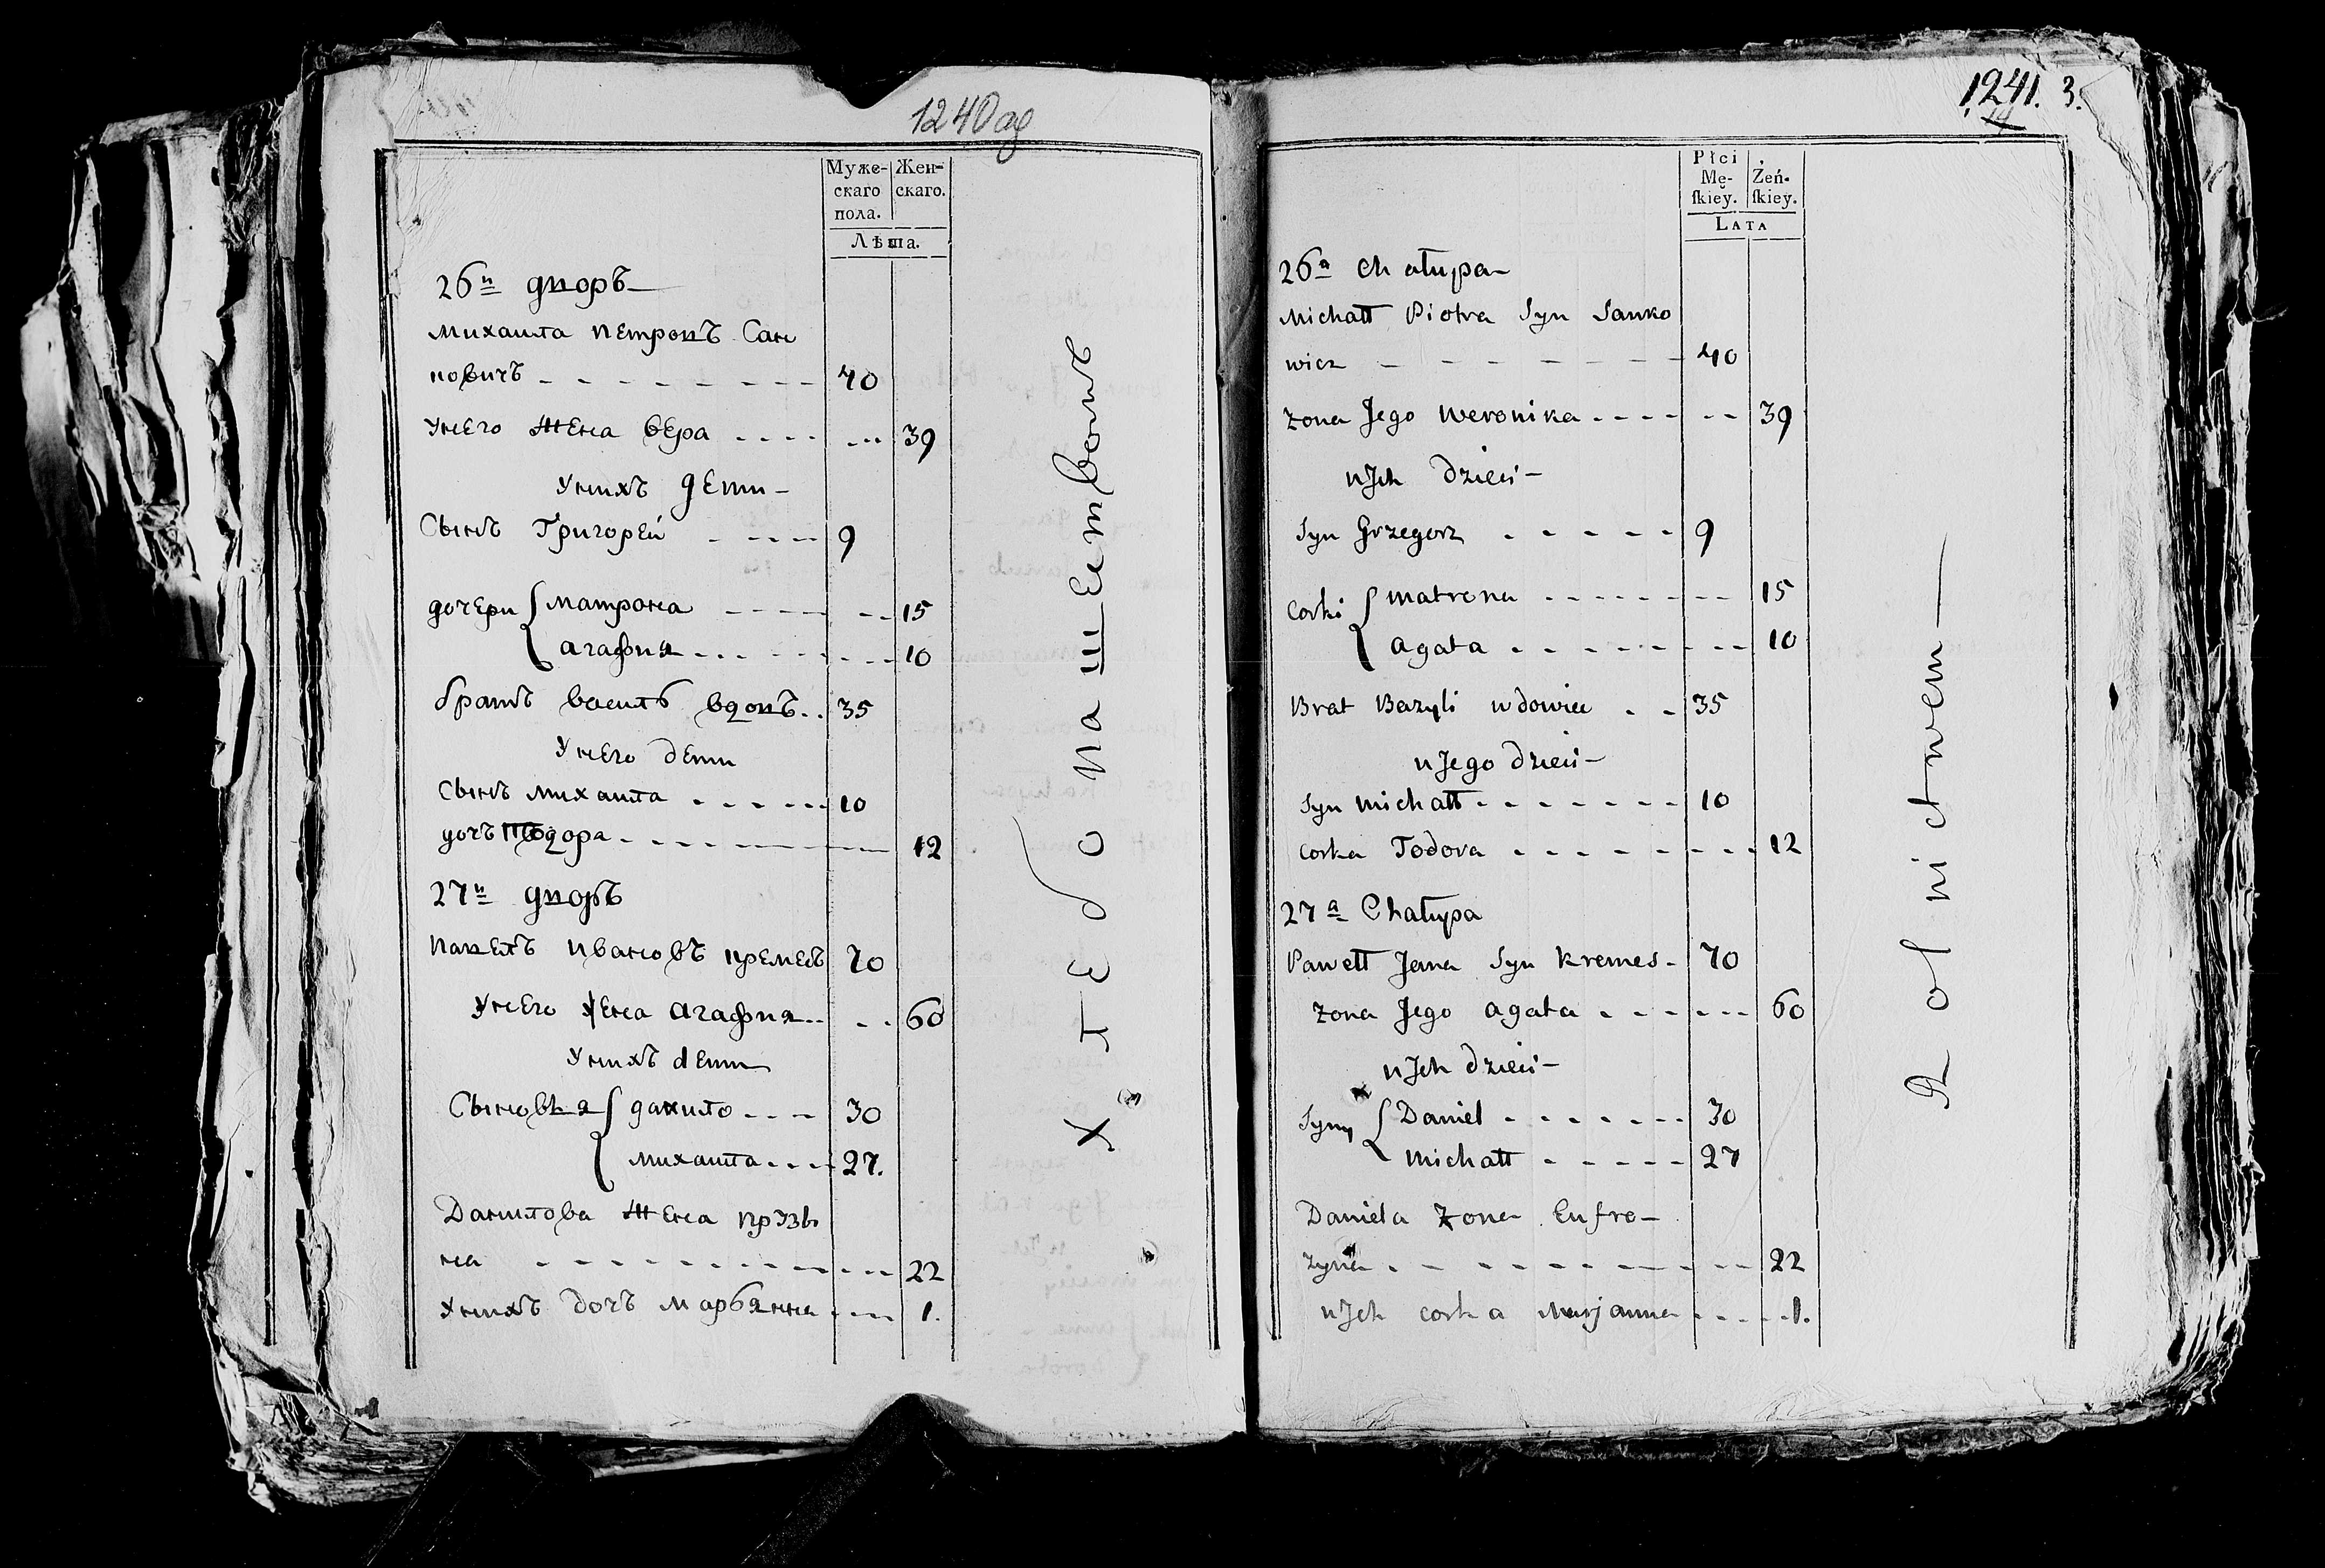 1240 об
Муже-
скаго
пола.
Жен-
скаго.
Лѣта.
26й дворъ
михаила петровъ Сан
ковичъ 40
унего жена вера 39
унихъ дети
Сынъ Григорей 9
дочери матрона 15
агафия 10
братъ василь вдовъ 35
унего дети
Сынъ михаила 10
дочъ тодора 12
27й дворъ
павелъ ивановъ кремесъ 70
унего жена агафия 60
унихъ дети
Сыновья данило 30
михаила 27.
Данилова жена
на 22
унихъ дочъ марьянна 1.
хлебопашествомъ
1241. 3.
Płci
Mę-
ſkiey.
Żeń-
ſkiey.
LATA
26a Chałupa
Michałł Piotra Syn Sanko
wicz 40
żona Jego weronika 39
uJch Dzieci
Syn Grzegorz 9
Corki matrona 15
agata 10
Brat Bazyli wdowiec 35
uJego dzieci
Syn michałł 10
Corka Todora 12
27a Chałupa
Pawełł Jana Syn kremes 70
żona Jego agata 60
uJch dzieci
Syny Daniel 30
michałł 27
Daniela żona Eufro-
zyna 22
uJch corka Marjanna 1.
Rolnictwem